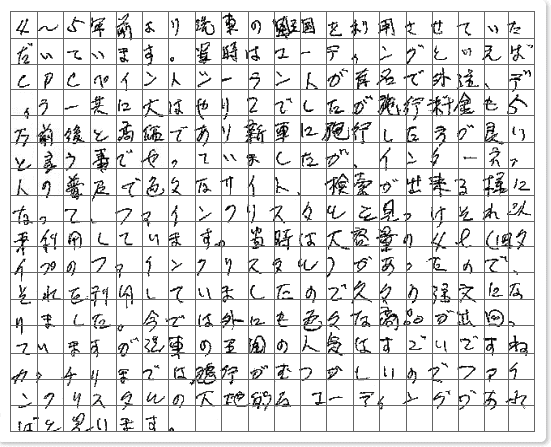 4～5年前より洗車の王国を利用させていた
だいています。当時はコーティングといえば
CPCペイントシーラントが有名で外注、デ
ィラー共に大はやりでしたが施行料金も5
万前後と高価であり新車に施行した方が良い
と言う事でやっていましたが、インターネッ
トの普及で色々なサイト、検索が出来る様に
なって、ファインクリスタルを見つけそれ以
来利用しています。当時は大容量の4ℓ(旧タ
イプのファインクリスタル)があったので、
それを利用していましたので久々の注文にな
りました。今では外にも色々な商品が出回っ
ていますが洗車の王国の人気はすごいですね
ガッチリまでは施行がむつかしいのでファイ
ンクリスタルの大地的なコーティングがあれ
ばと思います。